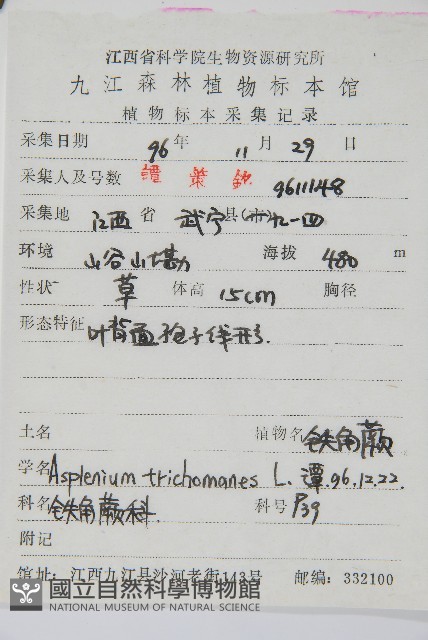 江西省科学院生物资源研究所
九江森林植物标本馆
植物标本采集记录
采集日期 96 年 11 月 29 日
采集人及号数 譚策銘 9611148
采集地 江西 省 武宁 县(市)九一四
环境 山谷山墈 海拔 480 m
性状 草 体高 15cm 胸径
形态特征 叶背面孢子线形.
土名 植物名 铁角蕨
学名 Asplenium trichomanes L. 谭.96.12.22.
科名 铁角蕨科. 科号 P39
附记
馆址: 江西九江县沙河老街143号 邮编: 332100
國立自然科學博物館
NATIONAL MUSEUM OF NATURAL SCIENCE